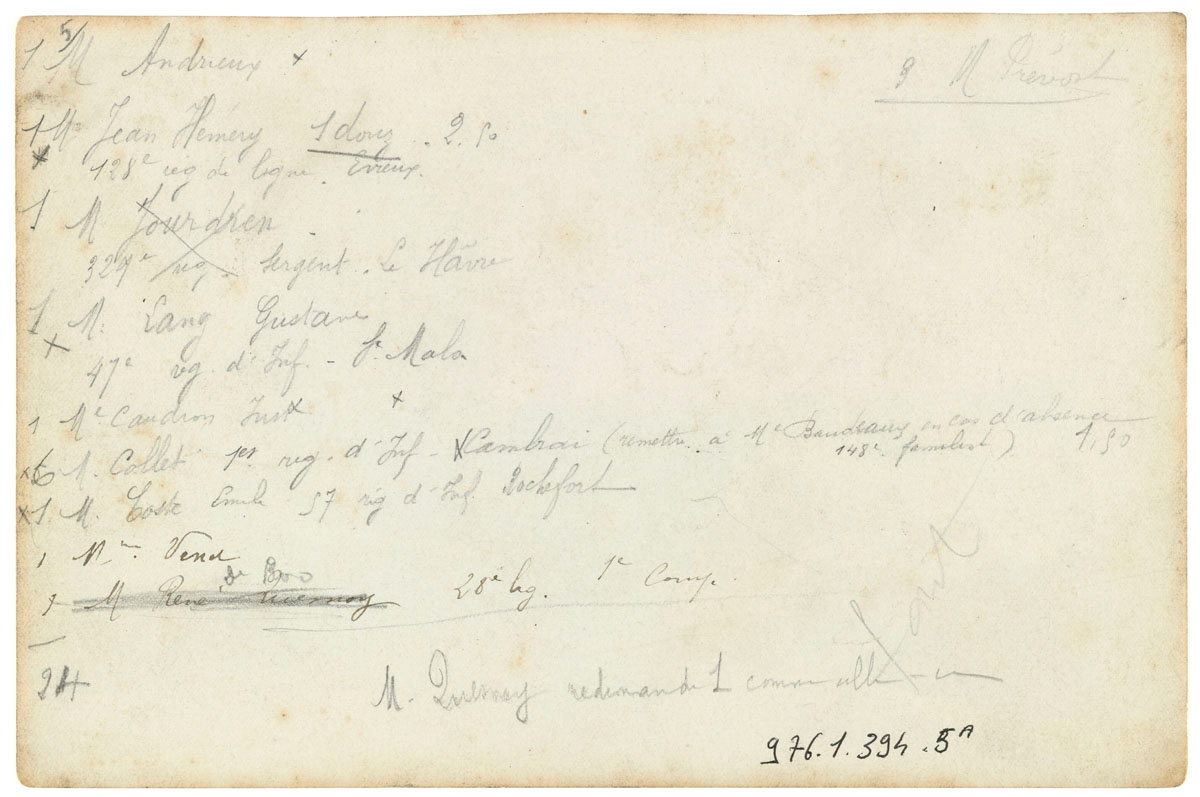 1 5/ M Andrieux x
9 M Prévost
1 Mr Jean Heméry 1 douz . 2.50
x 128e reg de ligne . Evreux.
1 M Jourdren
329e reg. Sergent . Le Hâvre
1 M. Lang Gustave
x 47e reg. d'Inf. - St Malo
1 Me Caudron Just x
x6 M. Collet 1er reg. d'Inf - x Cambrai (remettre à Me Baudeaux en cas d'absence 1,50
148e familist)
x1 M. Coste Emile 57 reg d'Inf. Rochefort
1 Mme
de
M René Quesnoy 28e leg. 1e Comp.
24
M. Quesnoy redemande 1 comme
976.1.394.5A